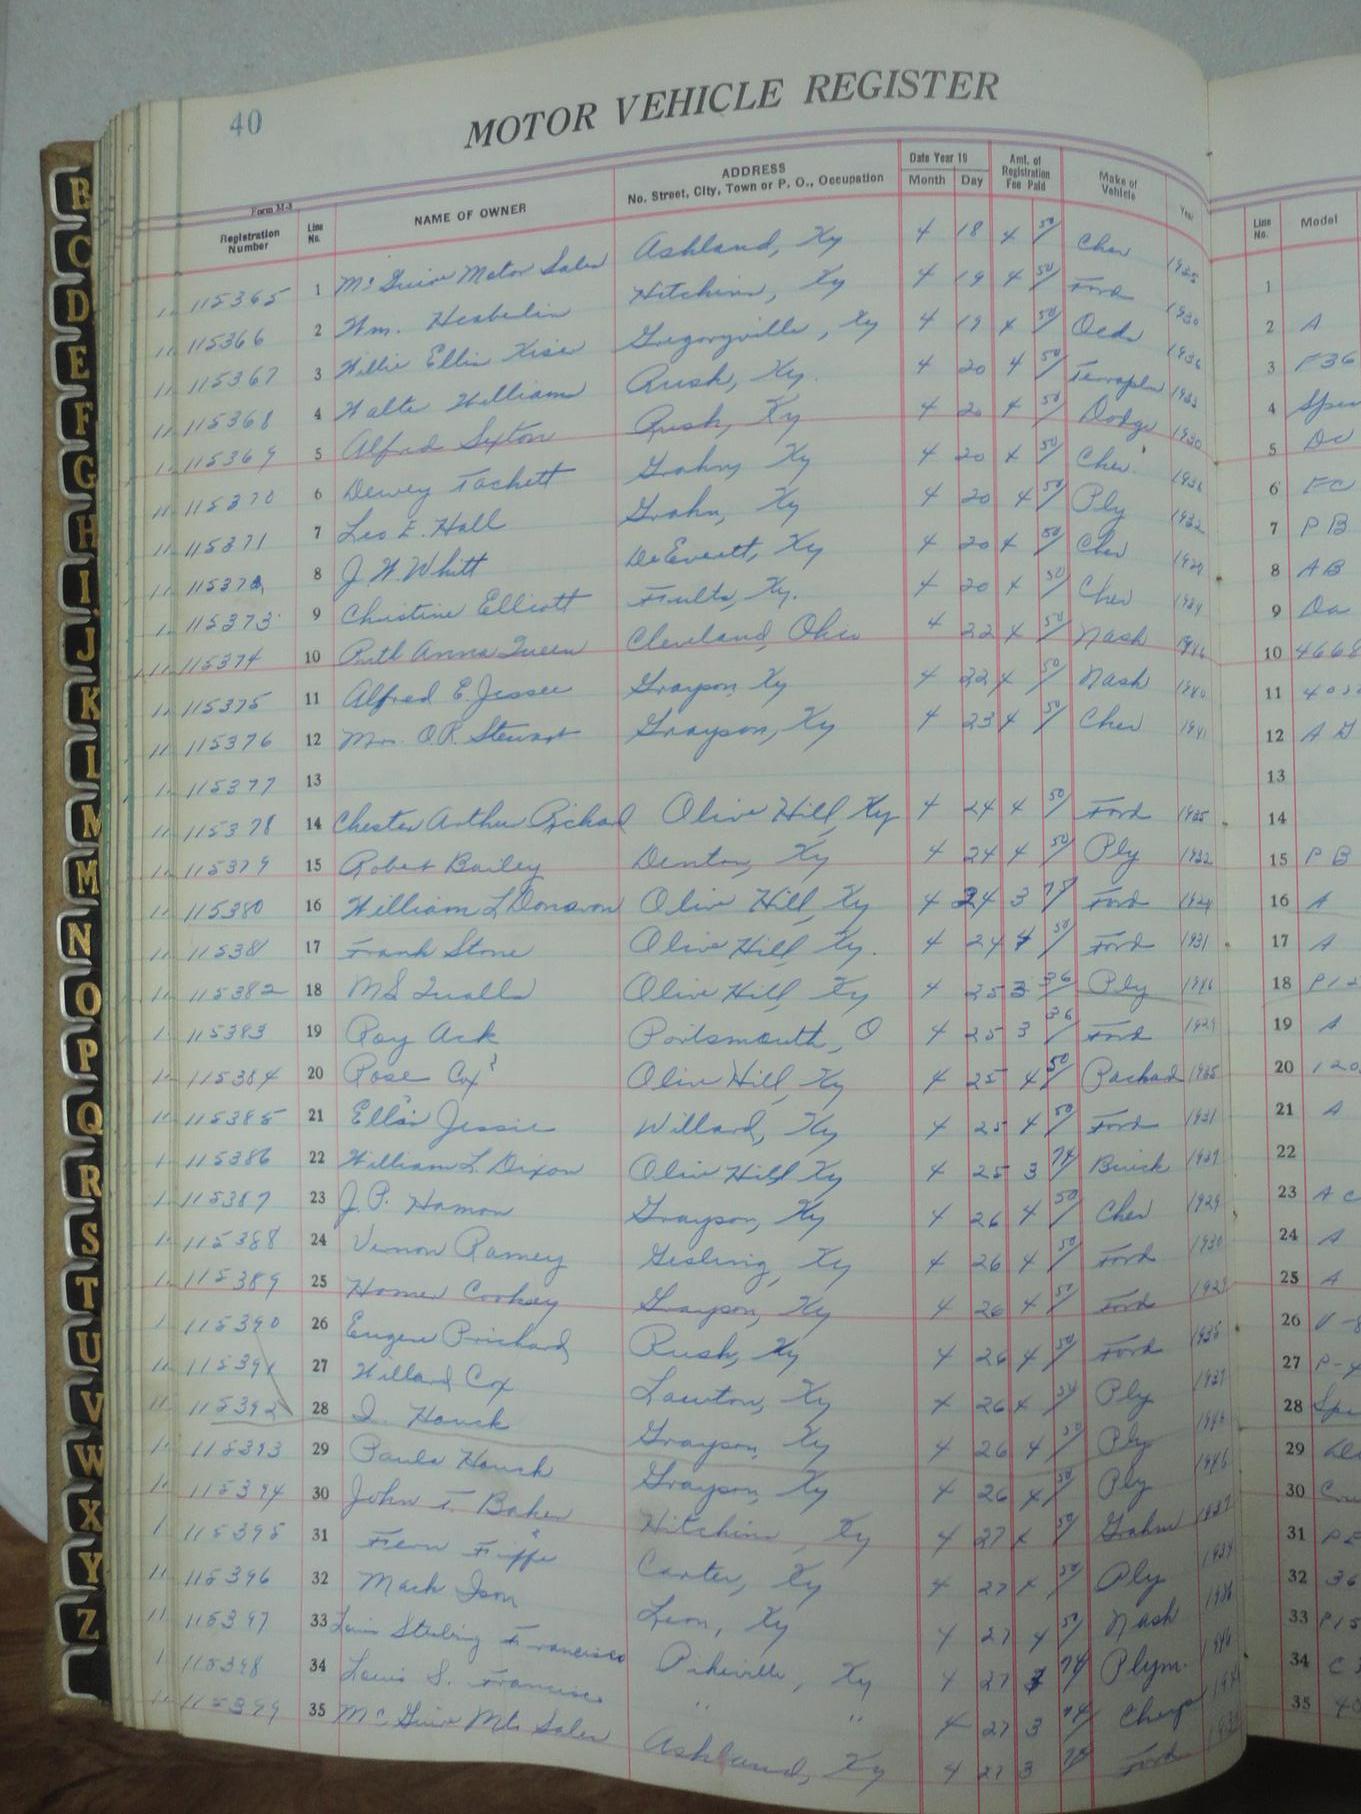 40
MOTOR VEHICLE REGISTER
Form M-3
Registration Number Line No. NAME OF OWNER ADDRESS No. Street, City, Town or P. O., Occupation Date Year 19 Month Day Amt. of Registration Fee Paid Make of Vehicle Year Line No. Model
115365 1 Mc Guire Motor Sales Ashland, Ky 4 18 4 50 Chev 1935 1
115366 2 Wm. Ky 4 19 4 50 Ford 1930 2 A
115367 3 Willie Ellis Kiser Gregoryville, Ky 4 19 4 50 Olds 1936 3 F36
115368 4 Walter Williams Rush, Ky. 4 20 4 50 Terraplane 1933 4
115369 5 Alfred Sexton Rush, Ky 4 20 4 50 Dodge 1930 5 DC
115370 6 Dewey Tackett Grahn, Ky 4 20 4 50 Chev. 1936 6 FC
115371 7 Leo E. Hall Grahn, Ky 4 20 4 50 Ply 1932 7 PB
8 J. W. Whitt Ky 4 20 4 50 Chev 1929 8 AB
115373 9 Christine Elliott Fults, Ky. 4 20 4 50 Chev 1934 9 Da
115374 10 Ruth Anna Queen Cleveland, Ohio 4 22 4 50 Nash 1946 10 4668
115375 11 Alfred E. Jessee Grayson, Ky 4 22 4 50 Nash 1940 11
115376 12 Mrs. O.R. Stewart Grayson, Ky 4 23 4 50 Chev 1941 12 A G
115377 13 13
115378 14 Chester Arthur Olive Hill, Ky 4 24 4 50 Ford 1935 14
115379 15 Robert Bailey Denton, Ky 4 24 4 50 Ply 1932 15 P B
115380 16 William L Donavon Olive Hill, Ky 4 24 3 75 Ford 1929 16 A
11538 17 Frank Stone Olive Hill, Ky. 4 24 4 50 Ford 1931 17 A
115382 18 MS Qualls Olive Hill, Ky 4 25 3 36 Ply 1946 18
115383 19 Roy Ack Portsmouth, O 4 25 3 36 Ford 1929 19 A
115384 20 Rose Cox Olive Hill, Ky 4 25 4 50 Packard 1935 20 120
115385 21 Jessie Willard, Ky 4 25 4 50 Ford 1931 21 A
115386 22 William L. Dixon Olive Hill Ky 4 25 3 74 Buick 1937 22
115387 23 J.P. Hamon Grayson, Ky 4 26 4 50 Chev 1929 23 A C
115388 24 Vernon Ramey Gesling, Ky 4 26 4 50 Ford 1930 24 A
115389 25 Homer Cooksey Grayson, Ky 4 26 4 50 Ford 1929 25 A
115390 26 Eugene Prichard Rush, Ky 4 26 4 50 Ford 1935 26 V-8
115391 27 Willard Cox Lawton, Ky 4 26 4 Ply 1937 27 P-4
115392 28 I. Houck Grayson, Ky 4 26 4 50 Ply 28
115393 29 Paula Houck Grayson, Ky 4 26 4 50 Ply 1946 29
115394 30 John T. Baker Hitchins, Ky 4 27 4 50 Graham 1937 30
115395 31 Fern Carter, Ky 4 27 4 50 Ply 1934 31 PE
115396 32 Mack Ison Leon, Ky 4 27 4 50 Nash 1936 32 36
115397 33 Louis Sterling Francisco Pikeville, Ky 4 27 74 Plym. 1946 33 P15
115398 34 Louis S. Francisco " " 4 27 3 74 34
115399 35 Mc Guire Mtr Sales Ashland, Ky 4 27 3 Ford 35
B
C
D
E
F
G
H
I
J
K
L
M
M
N
O
P
Q
R
S
T
U
V
W
X
Y
Z